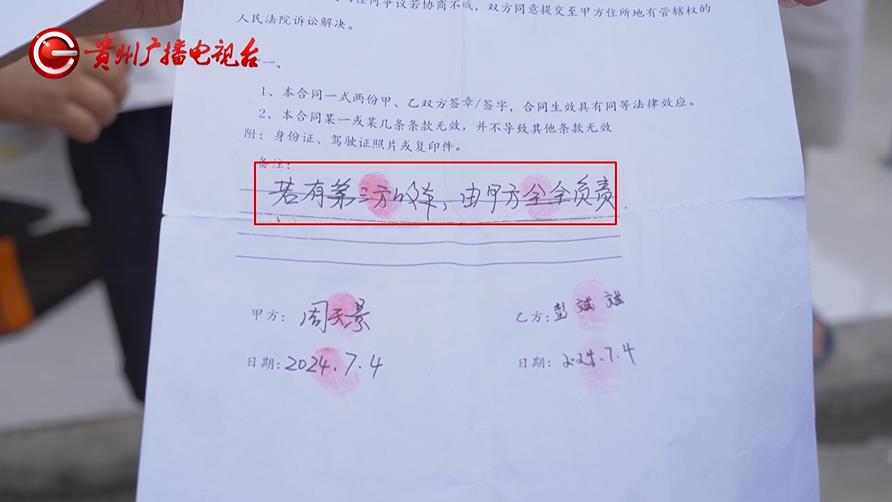 贵州广播电视台
何争议若协商不成，双方同意提交至甲方住所地有管辖权的
人民法院诉讼解决。
一、
1、本合同一式两份甲、乙双方签章/签字，合同生效具有同等法律效应。
2、本合同某一或某几条条款无效，并不导致其他条款无效
附：身份证、驾驶证照片或复印件。
备注：
若有第三方收车，由甲方全全负责.
甲方：周天景
乙方：彭斌斌
日期：2024.7.4
日期：2024.7.4